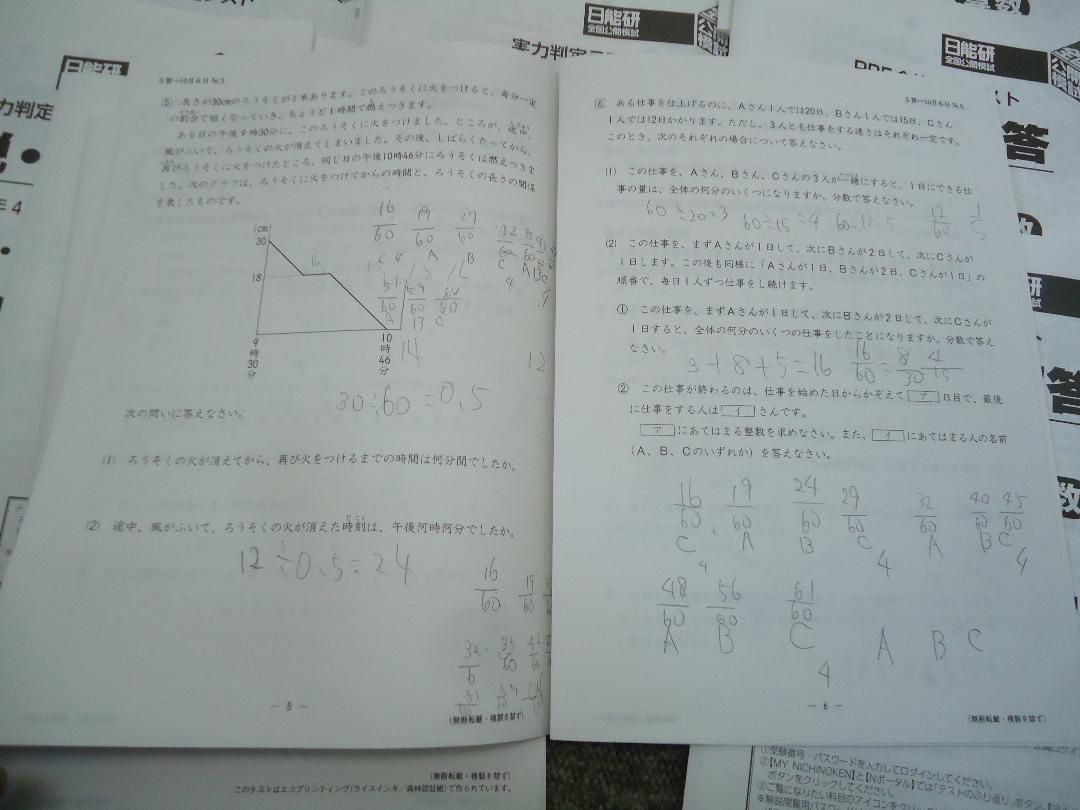 日能研
全国公開模試
実力判定テ
日能研
日能研
全国公開模試
力判定
スト
答
年4
5算―10月6日 No.5
5 長さが30cmのろうそくが1本あります。このろうそくに火をつけると、毎分一定
の割合で短くなっていき、ちょうど1時間で燃えつきます。
ある日の午後9時30分に、このろうそくに火をつけました。ところが、途中、
風がふいて、ろうそくの火が消えてしまいました。その後、しばらくたってから、
再びろうそくに火をつけたところ、同じ日の午後10時46分にろうそくは燃えつきま
した。次のグラフは、ろうそくに火をつけてからの時間と、ろうそくの長さの関係
を表したものです。
(cm)
30
18
16
9時30分
10時46分
16/60 19/60 27/60
51/60 59/60 64/60
B C
14
12
30÷60=0.5
次の問いに答えなさい。
(1) ろうそくの火が消えてから、再び火をつけるまでの時間は何分間でしたか。
(2) 途中、風がふいて、ろうそくの火が消えた時刻は、午後何時何分でしたか。
12÷0.5=24
16/60 19/60
35/60
― 5 ―
(無断転載・複製を禁ず)
5算―10月6日 No.6
6 ある仕事を仕上げるのに、Aさん1人では20日、Bさん1人では15日、Cさん
1人では12日かかります。ただし、3人とも仕事をする速さはそれぞれ一定です。
このとき、次のそれぞれの場合について答えなさい。
(1) この仕事を、Aさん、Bさん、Cさんの3人が一緒にすると、1日にできる仕
事の量は、全体の何分のいくつになりますか。分数で答えなさい。
60÷20=3 60÷15=4 60÷12=5 12/60 1/5
(2) この仕事を、まずAさんが1日して、次にBさんが2日して、次にCさんが
1日します。この後も同様に「Aさんが1日、Bさんが2日、Cさんが1日」の
順番で、毎日1人ずつ仕事をし続けます。
① この仕事を、まずAさんが1日して、次にBさんが2日して、次にCさんが
1日すると、全体の何分のいくつの仕事をしたことになりますか。分数で答え
なさい。
3+8+5=16 16/60=8/30 4/15
② この仕事が終わるのは、仕事を始めた日からかぞえて ア 日目で、最後
に仕事をする人は イ さんです。
ア にあてはまる整数を求めなさい。また、イ にあてはまる人の名前
(A、B、Cのいずれか)を答えなさい。
16/60 19/60 24/60 29/60 32/60 40/60 45/60
C A B C A B C
4 4 4
48/60 56/60 61/60
A B C A B C
4
― 6 ―
(無断転載・複製を禁ず)
(無断転載・複製を禁ず)
このテストはエコプリンティング(ライスインキ/森林認証紙)で作られています。
①受験番号・パスワードを入力してログインしてください。
②【MY NICHINOKEN】と【Nポータル】では「テストのふり返り」
ボタンをクリックしてください。
③ご覧になりたい科目のアイコンを